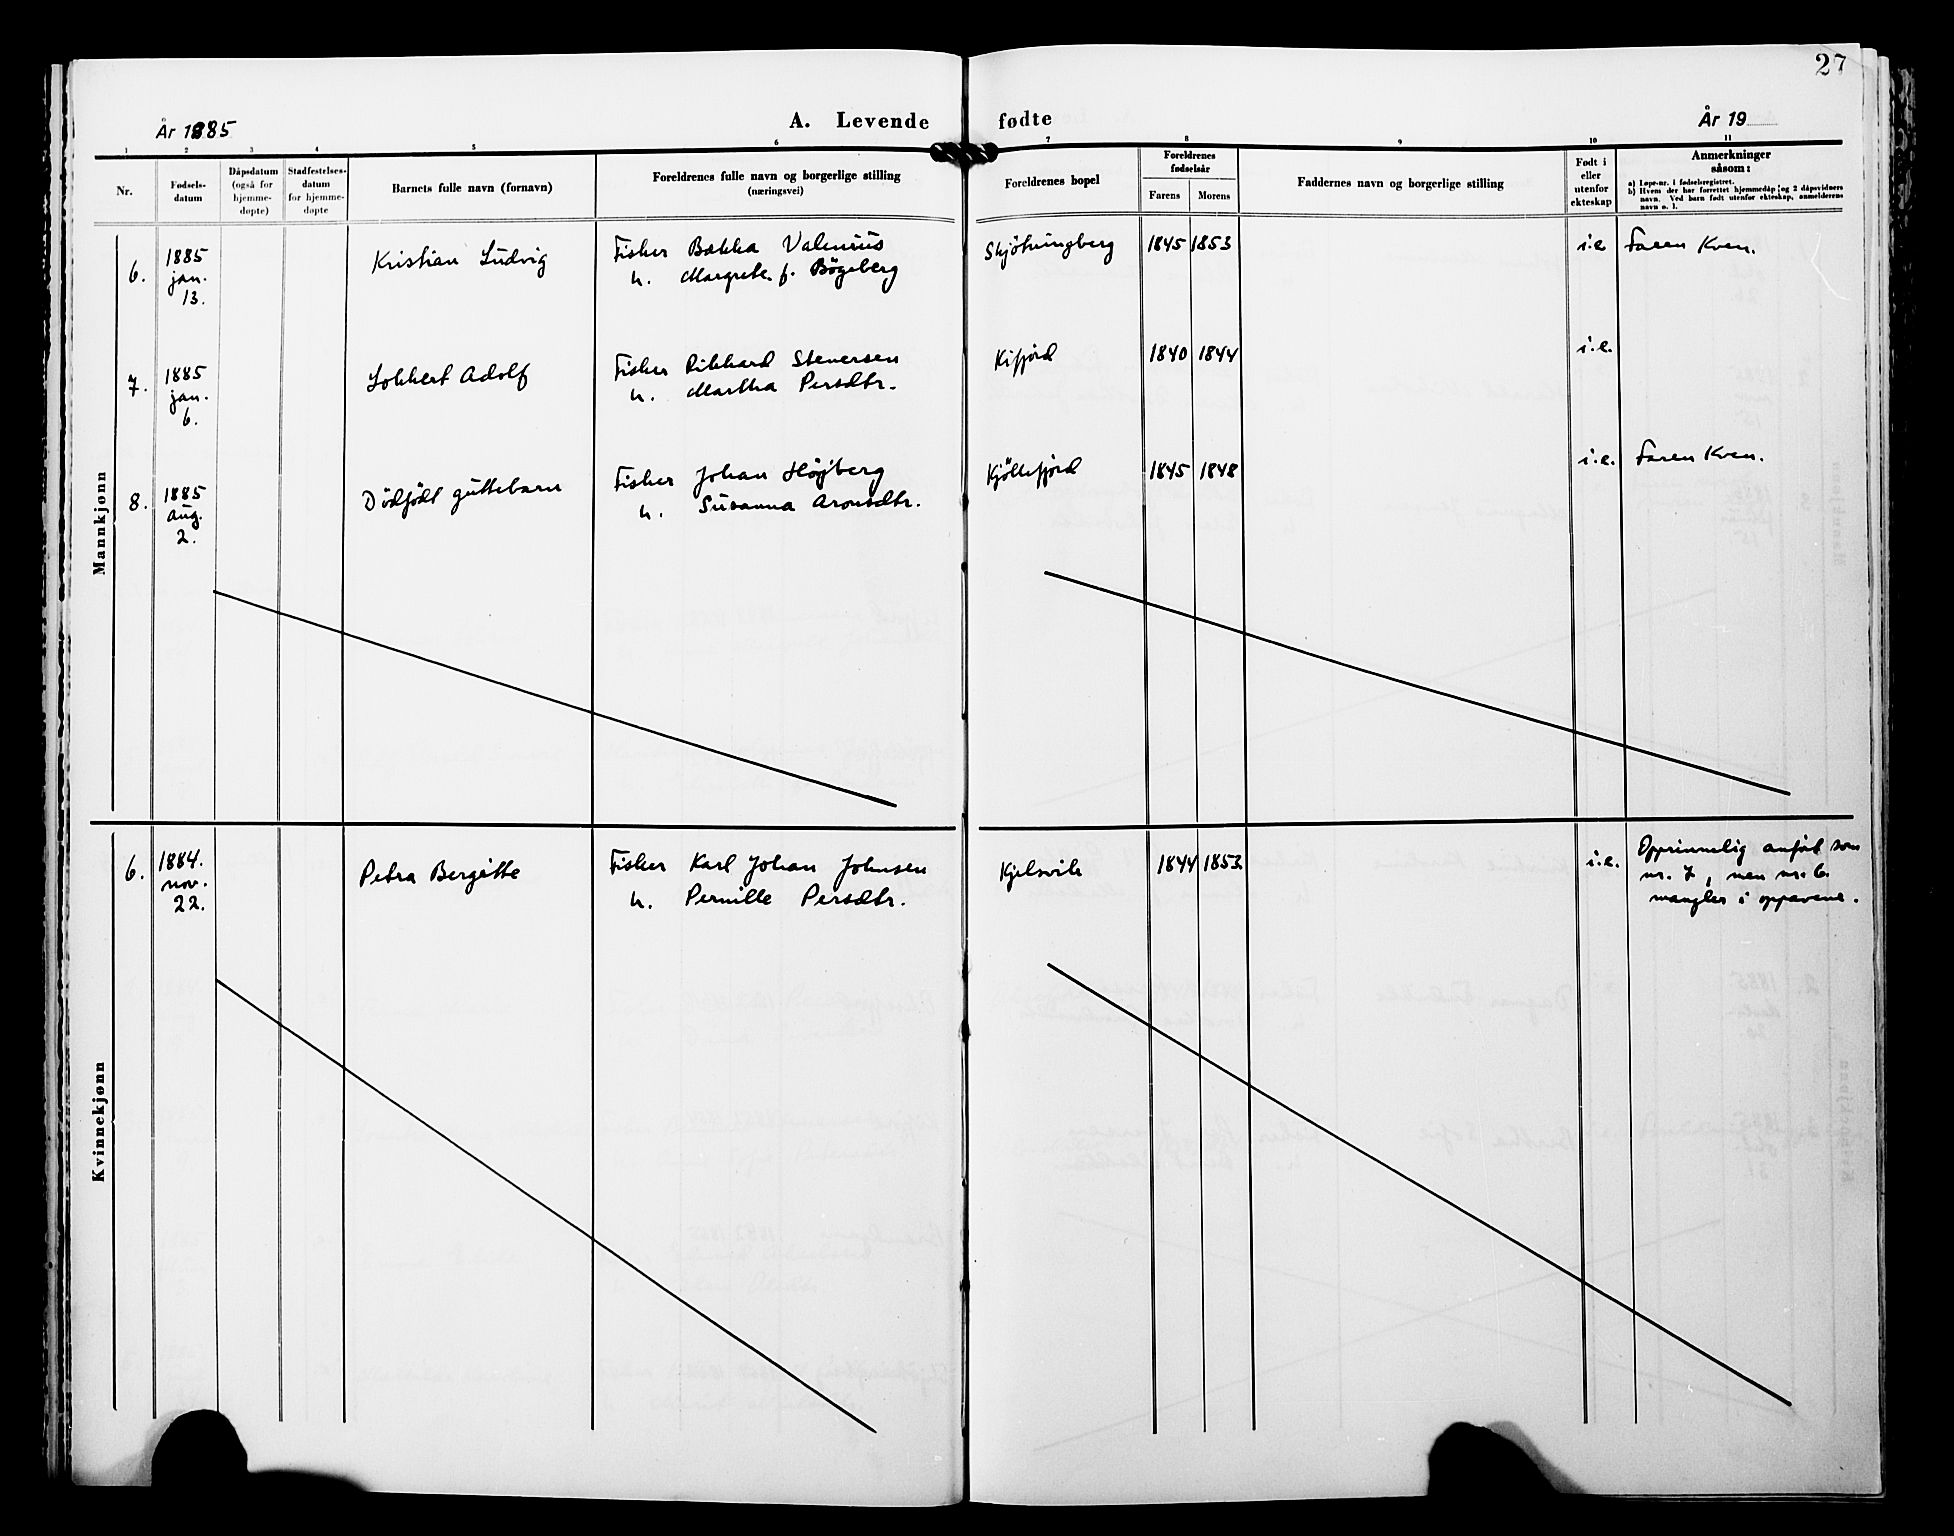 27
År 1885
A. Levende fødte
År 19
1 2 3 4 5 6 7 8 9 10 11
Nr.
Fødsels-
datum
Dåpsdatum
(også for
hjemme-
døpte)
Stadfestelses-
datum
for hjemme-
døpte
Barnets fulle navn (fornavn)
Foreldrenes fulle navn og borgerlige stilling
(næringsvei)
Foreldrenes bopel
Foreldrenes
fødselsår
Farens Morens
Faddernes navn og borgerlige stilling
Født i
eller
utenfor
ekteskap
Anmerkninger
såsom:
a) Løpe-nr. i fødselsregistret.
b) Hvem der har forrettet hjemmedåp og 2 dåpsvidners
navn. Ved barn født utenfor ekteskap, anmelderens
navn o. l.
Mannkjønn
6. 1885 jan. 13. Kristian Ludvig Fisker Bakka Valenius Skjötningberg 1845 1853 i.e. Faren Kven.
h. Margrete f. Bögeberg
7. 1885 jan. 6. Lokkert Adolf Fisker Rikkard Stenersen Kifjord 1840 1844 i.e.
h. Martha Persdtr.
8. 1885 aug. 2. Dödfödt guttebarn Fisker Johan Höjberg Kjöllefjord 1845 1848 i.e. Faren Kven.
h. Susanna Aronsdtr.
Kvinnekjønn
6. 1884. nov. 22. Petra Bergitte Fisker Karl Johan Johnsen Kjelsvik 1844 1853 i.e. Opprinnelig anført som
h. Pernille Persdtr. nr. 7, men nr. 6.
mangler i oppavene.